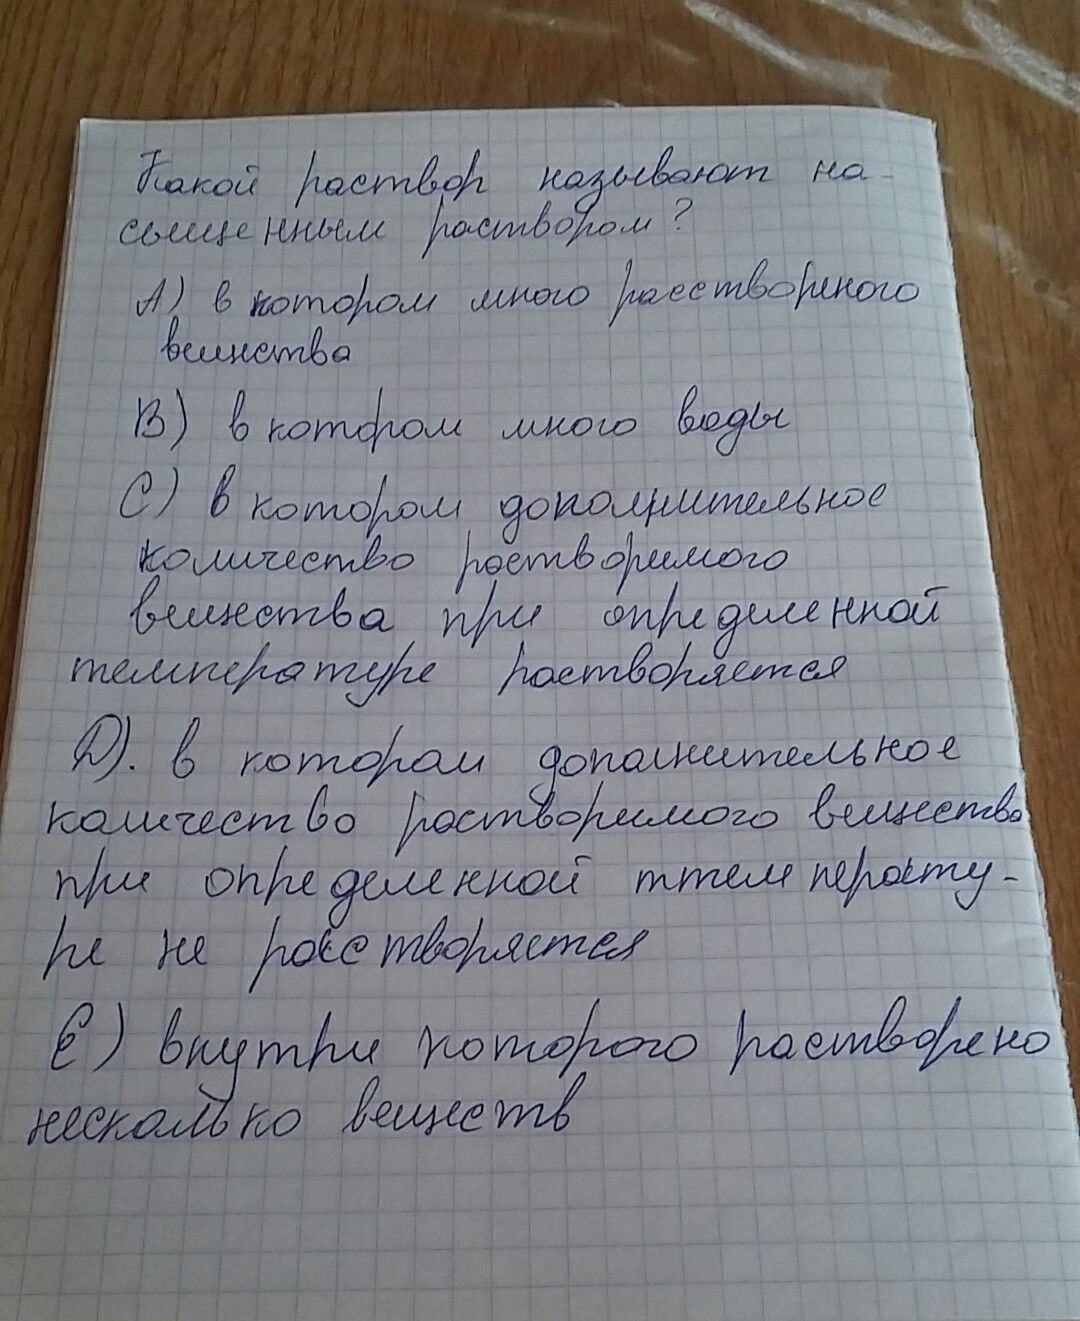 Какой раствор называют на-
сыщенным раствором?
А) в котором много расствореного
вещества
В) в котором много воды
С) в котором дополнительное
количество растворимого
вещества при определенной
температуре растворяется
D). в котором дополнительное
количество растворимого вещества
при определенной ттемперату-
ре не расстворяется
Е) внутри которого растворено
несколько веществ